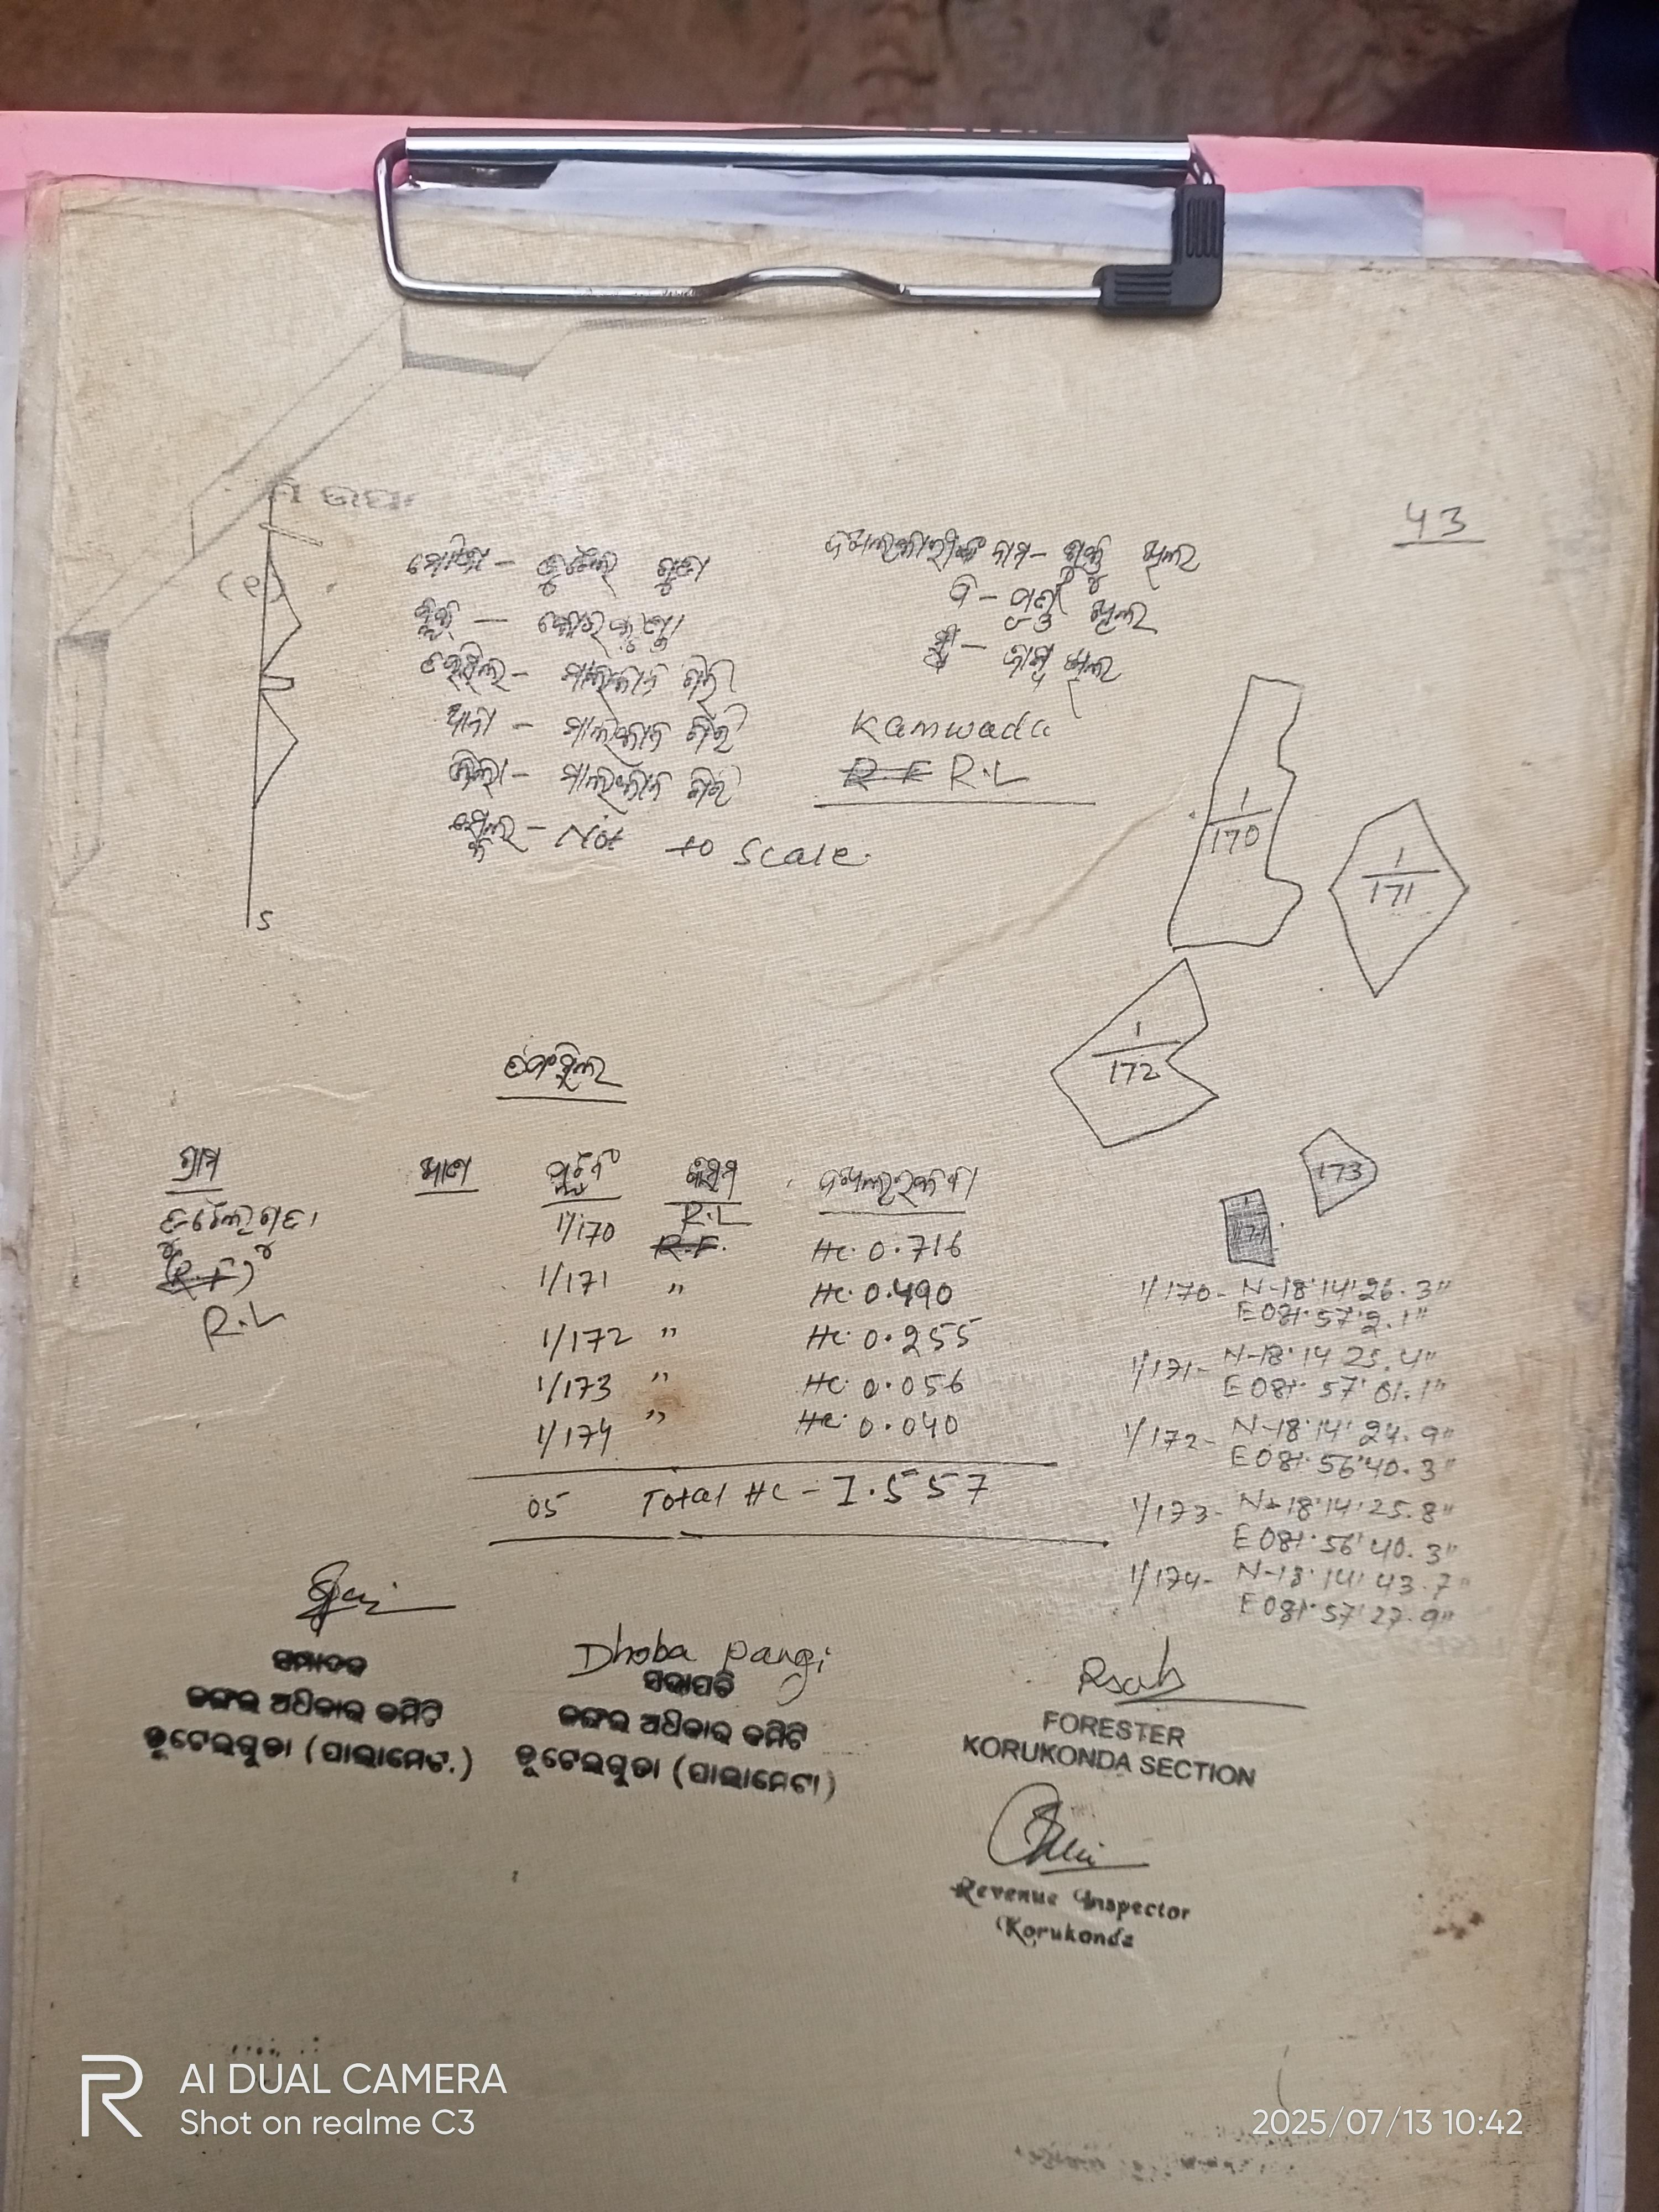 43
ମୌଜା - ଡୁଟେଲ ଗୁଡା
ବ୍ଲକ - କୋରକୁଣ୍ଡା
ତହସିଲ - ମାଲକାନ ଗିରି
ଥାନା - ମାଲକାନ ଗିରି
ଜିଲ୍ଲା - ମାଲକାନ ଗିରି
ସ୍କେଲ - Not to Scale.
ଦଖଲକାରୀଙ୍କ ନାମ - ଖିଲ
ପି - ଖିଲ
ସ୍ତ୍ରୀ - ଖିଲ
Kamwada
R.F R.L
S
1/170
1/171
1/172
173
ତଫସିଲ
ଗ୍ରାମ ଖାତା ପ୍ଲଟନଂ କିସମ ଦଖଲରକବା
1/170 R.L
R.F. Hc. 0.716
(R.F)
R.L
1/171 " Hc. 0.490
1/172 " Hc. 0.255
1/173 " Hc. 0.056
1/174 " Hc. 0.040
05 Total Hc - 1.557
1/170- N-18°14'26.3"
E081°57'2.1"
1/171- N-18°14 25.4"
E081°57'01.1"
1/172- N-18°14'24.9"
E081°56'40.3"
1/173- N-18°14'25.8"
E081°56'40.3"
1/174- N-18°14'43.7"
E081°57'27.9"
ସମ୍ପାଦକ
ଜଙ୍ଗଲ ଅଧିକାର କମିଟି
ଡୁଟେଲଗୁଡା (ପାଲାମେଟା)
Dhoba Pangi
ସଭାପତି
ଜଙ୍ଗଲ ଅଧିକାର କମିଟି
ଡୁଟେଲଗୁଡା (ପାଲାମେଟା)
FORESTER
KORUKONDA SECTION
Revenue Inspector
Korukonda
AI DUAL CAMERA
Shot on realme C3
2025/07/13 10:42